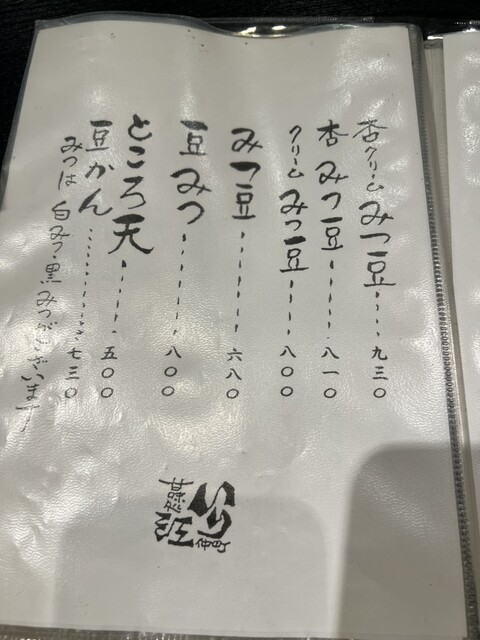 杏クリームみつ豆・・・・九三〇
杏みつ豆・・・・・・八一〇
クリームみつ豆・・・・八〇〇
みつ豆・・・・・・・・六八〇
豆みつ・・・・・・・・八〇〇
ところ天・・・・・・五〇〇
豆かん・・・・・・・・七三〇
みつは 白みつ・黒みつがございます
甘味処
仲町